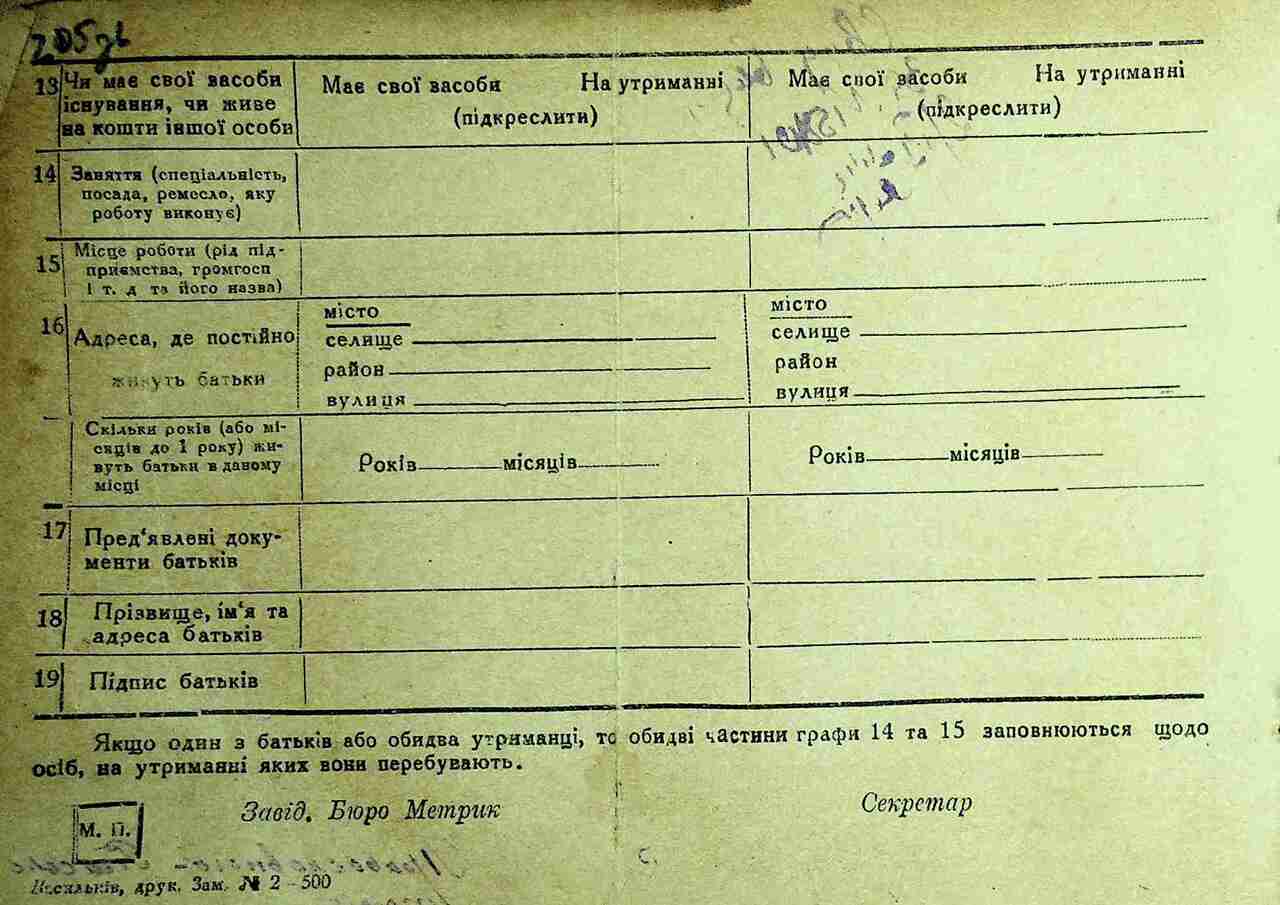 205
13 Чи має свої засоби існування, чи живе на кошти іншої особи
Має свої засоби На утриманні
(підкреслити)
Має свої засоби На утриманні
(підкреслити)
14 Заняття (спеціальність, посада, ремесло, яку роботу виконує)
15 Місце роботи (рід підприємства, громгосп і т. д та його назва)
16 Адреса, де постійно живуть батьки
місто
селище
район
вулиця
місто
селище
район
вулиця
Скільки років (або місяців до 1 року) живуть батьки в даному місці
Років місяців
Років місяців
17 Пред'явлені документи батьків
18 Прізвище, ім'я та адреса батьків
19 Підпис батьків
Якщо один з батьків або обидва утриманці, то обидві частини графи 14 та 15 заповнюються щодо
осіб, на утриманні яких вони перебувають.
Завід. Бюро Метрик
Секретар
М. П.
Васильків, друк. Зам. № 2 - 500